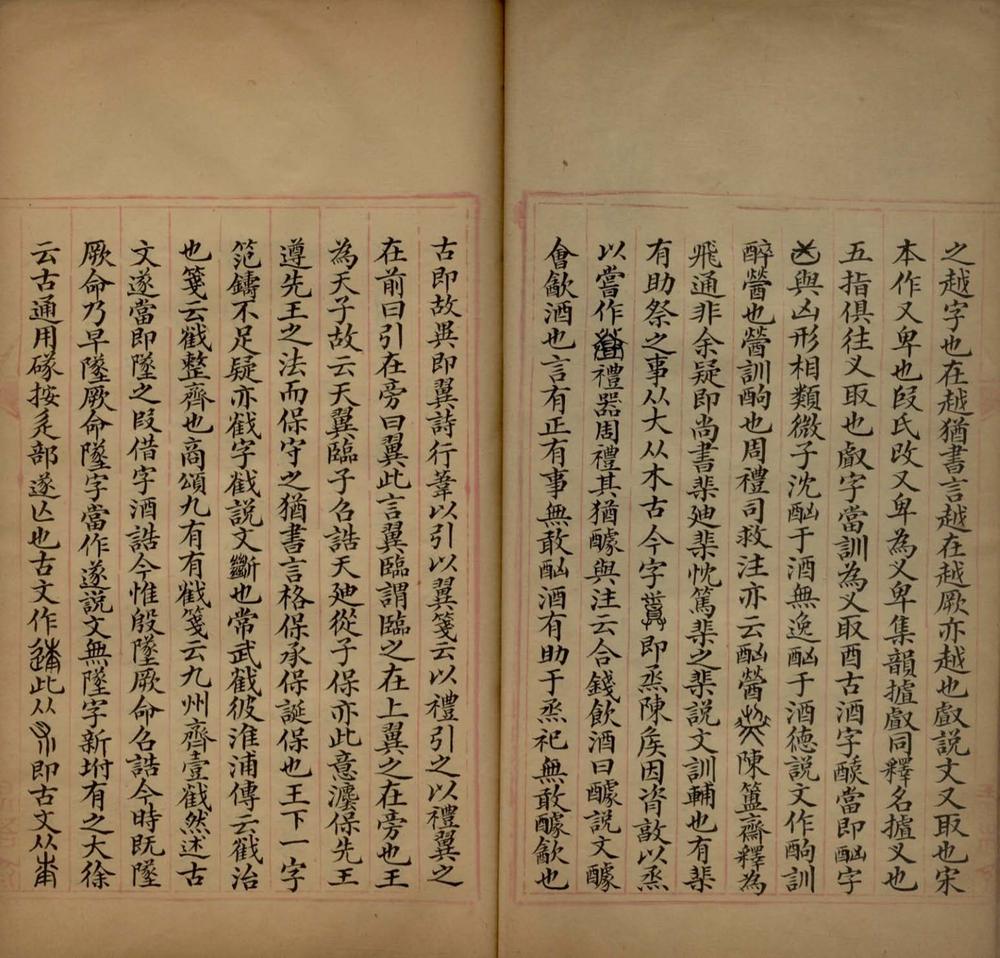 之越字也在越猶書言越在越厥亦越也㪥說文又取也宋
本作又卑也段氏改又卑為叉卑集韻攎㪥同釋名攎叉也
五指俱往叉取也㪥字當訓為叉取酉古酒字醆當即酗字
與凶形相類微子沈酗于酒無逸酗于酒德說文作酌訓
醉醟也醟訓酌也周禮司救注亦云酗醟陳簠齋釋為
飛通非余疑即尚書棐廸棐忱篤棐之棐說文訓輔也有棐
有助祭之事从大从木古今字即烝陳矦因資敦以烝
以嘗作禮器周禮其猶醵與注云合錢飲酒曰醵說文醵
會歙酒也言有正有事無敢酗酒有助于烝祀無敢醵歙也
古即故異即翼詩行葦以引以翼箋云以禮引之以禮翼之
在前曰引在旁曰翼此言翼臨謂臨之在上翼之在旁也王
為天子故云天翼臨子召誥天廸從子保亦此意灋保先王
遵先王之法而保守之猶書言格保承保誕保也王下一字
笵鑄不足疑亦戬字戬說文斷也常武戬彼淮浦傳云戬治
也箋云戬整齊也商頌九有有戬箋云九州齊壹戬然述古
文遂當即墜之叚借字酒誥今惟殷墜厥命召誥今時旣墜
厥命乃早墜厥命墜字當作遂說文無墜字新坿有之大徐
云古通用䃍按辵部遂亾也古文作此从即古文从